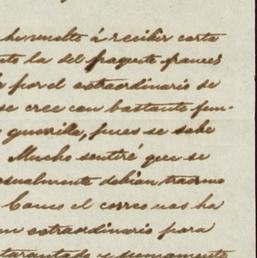 ho vuelto á recibir carta
la del paquete frances
por el estraordinario de
se cree con bastante fun-
guerrilla, pues se sabe
Mucho sentiré que se
casualmente debian traerme
el correo nos ha
estraordinario para
y sumamente